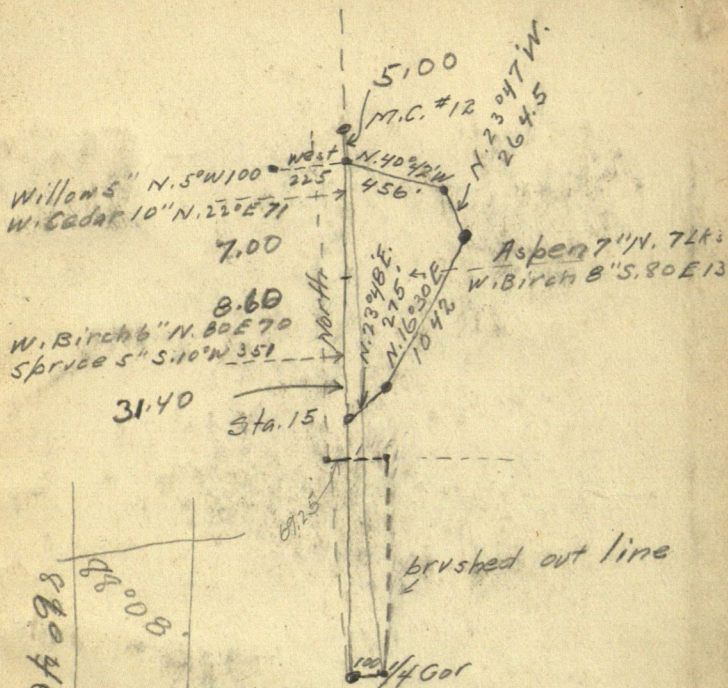 5.00
M.C. #12
N.23°47'W.
264.5
West
225
N.40°42'W
456'
Willow 5" N.5°W100
W. Cedar 10" N.22°E71
7.00
8.60
North
Aspen 7" N. 7Lks
W. Birch 8" S.80 E 13
N.23°48'E.
275'
N.16°30'E
1042
W. Birch 6" N. 80E70
Spruce 5" S.10°W 351
31.40
Sta. 15
69.25
brushed out line
100
1/4 Cor